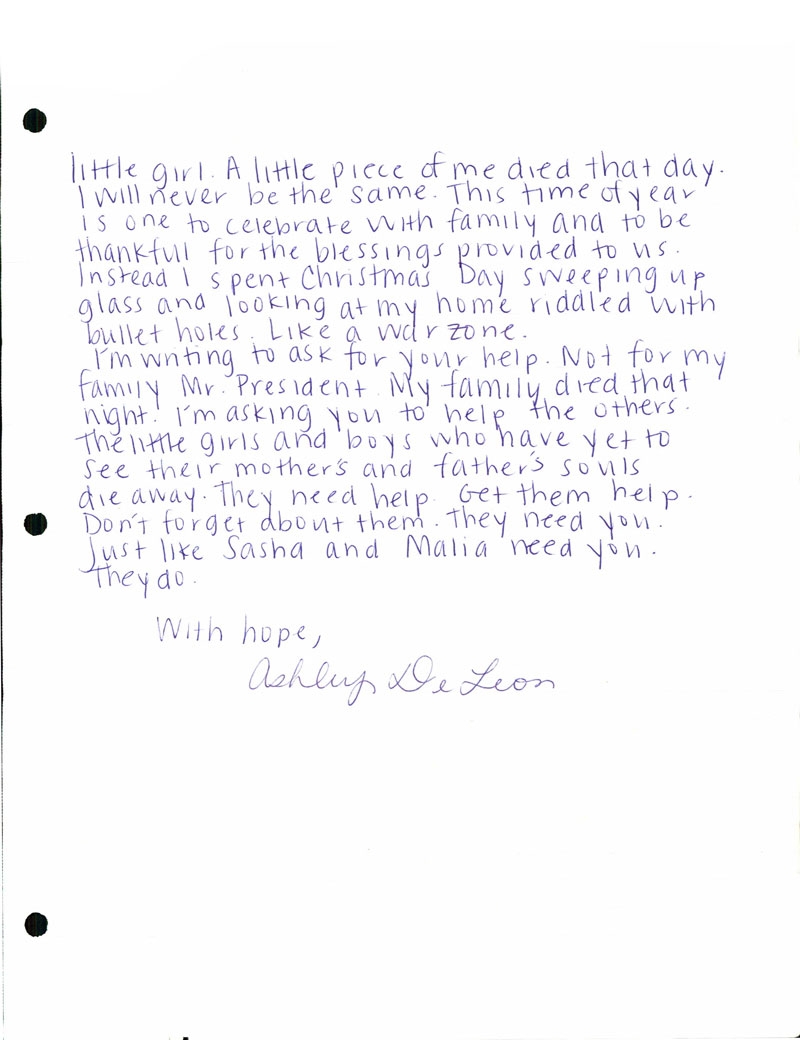 little girl. A little piece of me died that day.
I will never be the same. This time of year
is one to celebrate with family and to be
thankfull for the blessings provided to us.
Instead I spent Christmas Day sweeping up
glass and looking at my home riddled with
bullet holes. Like a warzone.
I'm writing to ask for your help. Not for my
family Mr. President. My family died that
night. I'm asking you to help the others.
The little girls and boys who have yet to
see their mother's and father's souls
die away. They need help. Get them help.
Don't forget about them. They need you.
Just like Sasha and Malia need you.
They do.
With hope,
Ashley De Leon